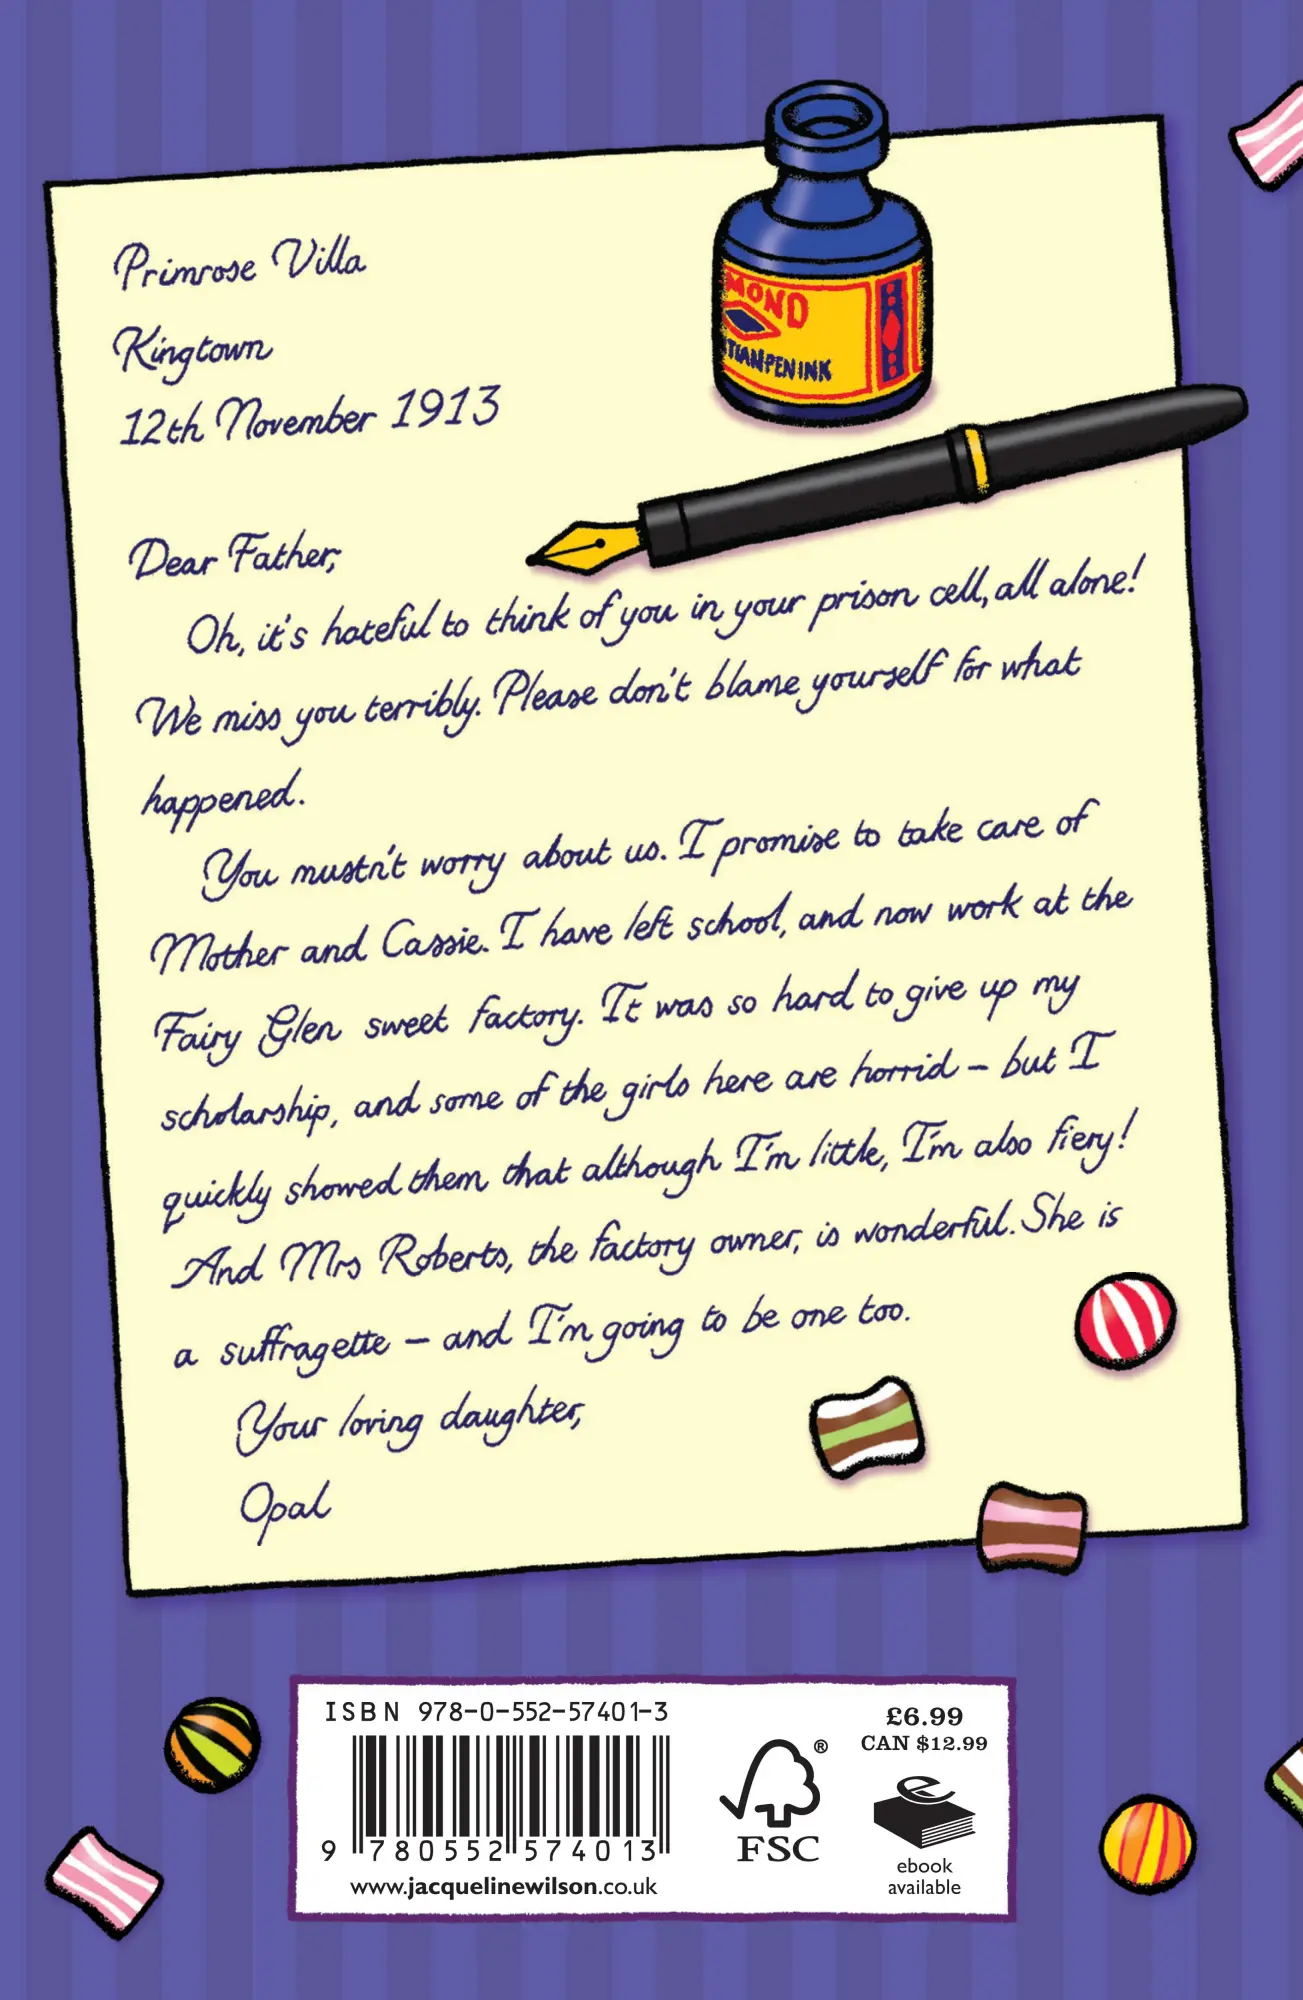 Primrose Villa
Kingtown
12th November 1913
MOND
TIAN PEN INK
Dear Father,
Oh, it's hateful to think of you in your prison cell, all alone!
We miss you terribly. Please don't blame yourself for what
happened.
You mustn't worry about us. I promise to take care of
Mother and Cassie. I have left school, and now work at the
Fairy Glen sweet factory. It was so hard to give up my
scholarship, and some of the girls here are horrid – but I
quickly showed them that although I'm little, I'm also fiery!
And Mrs Roberts, the factory owner, is wonderful. She is
a suffragette – and I'm going to be one too.
Your loving daughter,
Opal
ISBN 978-0-552-57401-3
9 780552 574013
www.jacquelinewilson.co.uk
®
FSC
£6.99
CAN $12.99
e
ebook
available